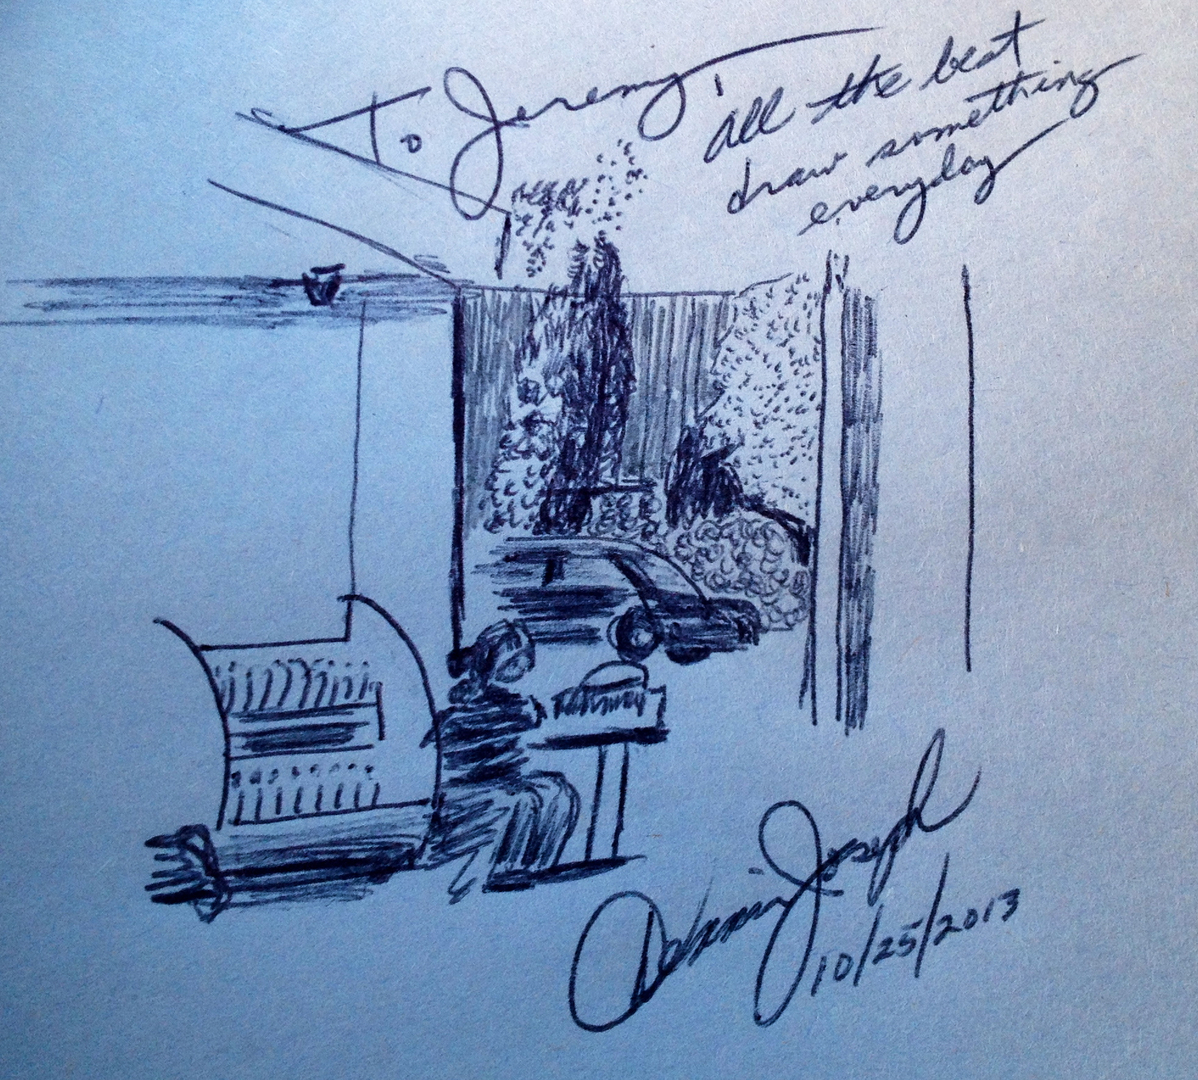 To Jeremy,
all the best
draw something
everyday
Joseph
10/25/2013